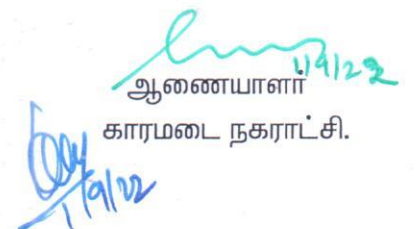 1/9/22
ஆணையாளர்
காரமடை நகராட்சி.
1/9/22